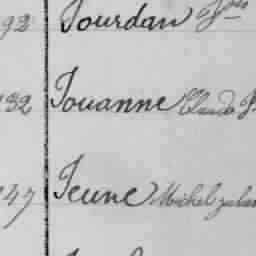 92 Jourdan
132 Jouanne Claude
147 Jeune Michel